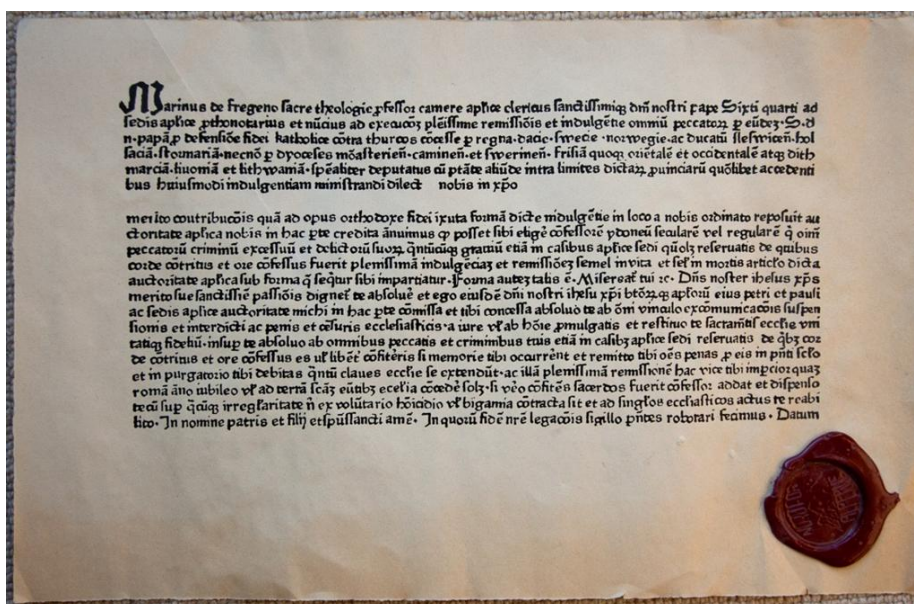 Marinus de Fregeno sacre theologie ꝓfessor camere apl̄ice clericus sanctissimiqꝫ dn̄i nostri pape Sixti quarti ad
sedis apl̄ice ꝓthonotarius et nūcius ad execucōꝫ plēissime remissiōis et indulgētie omniū peccatoꝝ ꝑ eūdeꝫ · S · d
n · papā ꝓ defensiōe fidei katholice cōtra thurcos cōcesse ꝑ regna · dacie · swecie · norwegie · ac ducatū sleswiceñ · hol
saciā · stormariā · necnō ꝑ dyoceses mōasterieñ · camineñ · et swerineñ · frisiā quoqꝫ oriētalē et occidentalē atqꝫ dith
marciā · liuomā et lithwaniā · spēaliter deputatus cū ptāte aliūde intra limites dictaꝝ ꝓuinciarū quōlibet accedenti
bus huiusmodi indulgentiam ministrandi dilect nobis in xp̄o
merito contribucōis quā ad opus orthodoxe fidei iuxta formā dicte indulgētie in loco a nobis ordinato reposuit au
ctoritate apl̄ica nobis in hac ꝑte credita ānuimus ꝙ posset sibi eligē cōfessorē ydoneū secularē vel regularē q̇ oīm
peccatorū criminū excessuū et delictorū suoꝝ q̄ntūcūqꝫ grauiū etiā in casibus apl̄ice sedi quōlꝫ reseruatis de quibus
corde cōtritus et ore cōfessus fuerit plenissimā indulgēciaꝫ et remissiōeꝫ semel in vita et sel̄ in mortis articl̄o dicta
auctoritate apl̄ica sub forma q̄ seq̄tur sibi impartiatur · Forma auteꝫ talis ē · Misereat̄ tui ⁊c · Dn̄s noster ihesus xp̄s
merito sue sanctissīe passiōis dignet̄ te absoluē et ego eiusdē dn̄i nostri ihesu xp̄i btōꝝqꝫ apl̄orū eius petri et pauli
ac sedis apl̄ice auctoritate michi in hac ꝑte cōmissa et tibi concessa absoluo te ab om̄i vinculo excōmunicacōis suspen
sionis et interdicti ac penis et cēsuris ecclesiasticis · a iure vl̄ ab hōie ꝓmulgatis et restituo te sacramētis ecclīe vni
tatiqꝫ fideliū · insuꝑ te absoluo ab omnibus peccatis et criminibus tuis etiā in calibꝫ apl̄ice sedi reseruatis de q̇bꝫ cor
de cōtritus et ore cōfessus es ul̄ libēt̄ cōfitēris si memorie tibi occurrēnt et remitto tibi oēs penas ꝓ eis in p̄nti scl̄o
et in purgatorio tibi debitas q̄ntū claues ecclīe se extendūt · ac illā plenissimā remissionē hac vice tibi imꝑciorquaꝫ
romā āno iubileo vl̄ ad terrā scāꝫ eūtibꝫ ecel̄ia cōcedē solꝫ · si v̄o cōfitēs sacerdos fuerit cōfessor addat et dispenso
tecū suꝑ q̄cūqꝫ irregl̄aritate n̄ ex volūtario hōicidio vl̄ bigamia cōtracta sit et ad singl̄os eccl̄iasticos actus te reabi
lito · In nomine patris et filij et sp̄ussancti amē · In quorū fidē nr̄e legacōis sigillo p̄ntes roborari fecimus · Datum